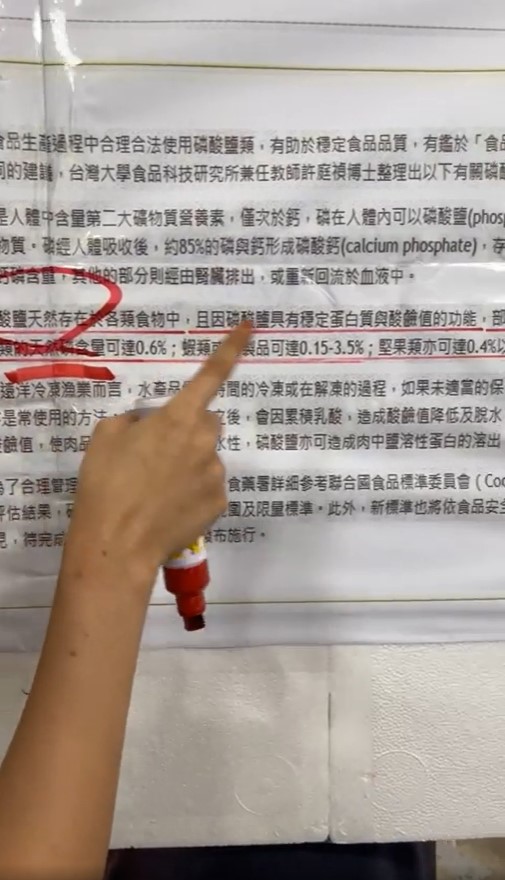 食品生產過程中合理合法使用磷酸鹽類，有助於穩定食品品質，有鑑於「食品
同的建議，台灣大學食品科技研究所兼任教師許庭禎博士整理出以下有關磷酸
是人體中含量第二大礦物質營養素，僅次於鈣，磷在人體內可以磷酸鹽(phosp
物質。磷經人體吸收後，約85%的磷與鈣形成磷酸鈣(calcium phosphate)，存
鈣磷含量，其他的部分則經由腎臟排出，或重新回流於血液中。
酸鹽天然存在於各類食物中，且因磷酸鹽具有穩定蛋白質與酸鹼值的功能，部
類的天然磷含量可達0.6%；蝦類或 製品可達0.15-3.5%；堅果類亦可達0.4%以
遠洋冷凍漁業而言，水產品 時間的冷凍或在解凍的過程，如果未適當的保
是常使用的方法， 之後，會因累積乳酸，造成酸鹼值降低及脫水
酸鹼值，使肉品 水性，磷酸鹽亦可造成肉中鹽溶性蛋白的溶出
為了合理管理 食藥署詳細參考聯合國食品標準委員會 ( Cod
評估結果， 範圍及限量標準。此外，新標準也將依食品安全
見，待完成 發布施行。